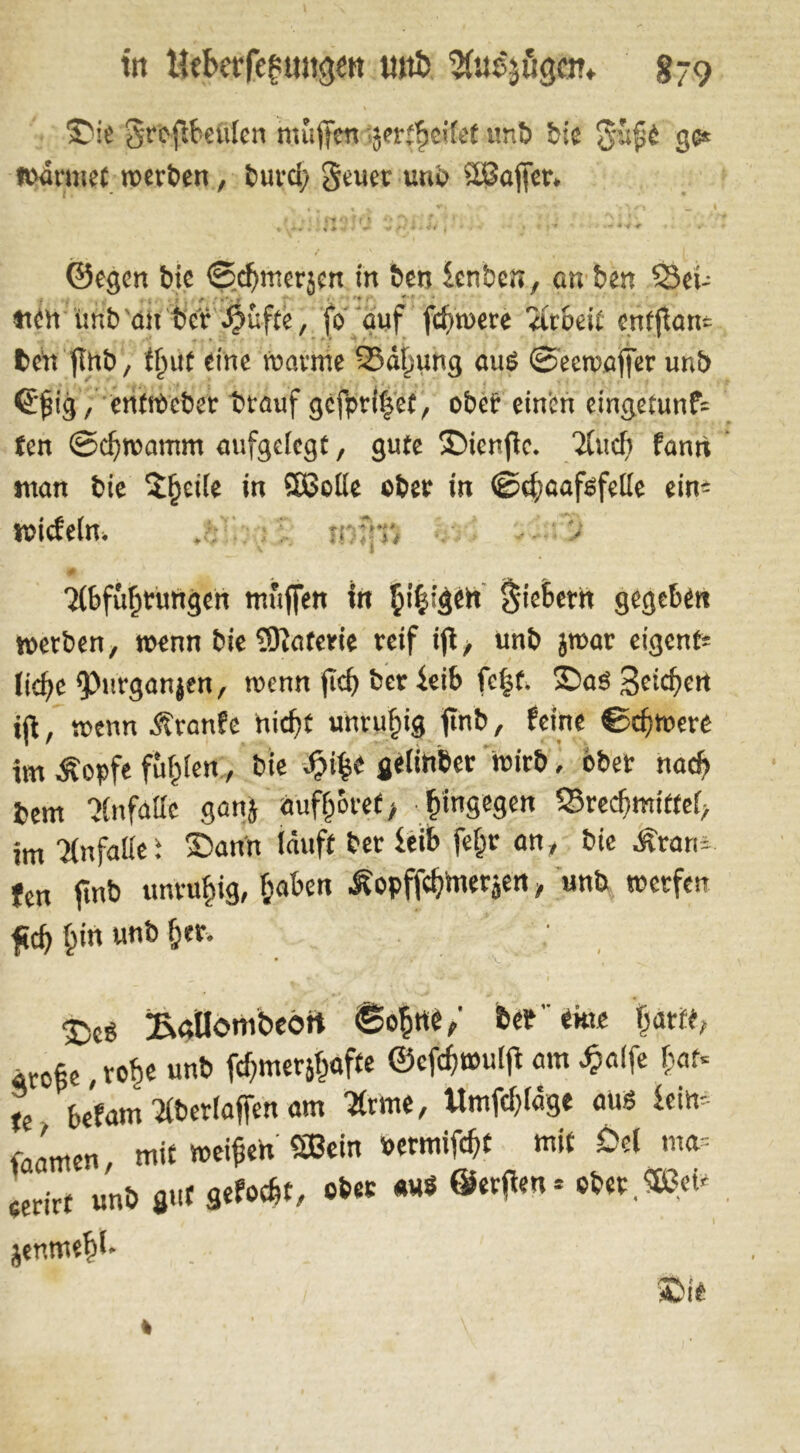 in Uebersetzungen und Auszügen. 879
Die Frostbeulen müssen zertheilet und die Füße ge-
wärmet werden, durch Feuer und Wasser.
Gegen die Schmerzen in den Lenden, an den Bei-
nen und an der Hüfte, so auf schwere Arbeit entstan-
den sind, thut eine warme Bähung aus Seewasser und
Eßig, entweder drauf gesprützet, oder einen eingetunk-
ten Schwamm aufgelegt, gute Dienste. Auch kann
man die Theile in Wolle oder in Schaafsfelle ein-
wickeln.
Abführungen müssen in hitzigen Fiebern gegeben
werden, wenn die Materie reif ist, und zwar eigent-
liche Purganzen, wenn sich der Leib setzt. Das Zeichen
ist, wenn Kranke nicht unruhig sind, keine Schwere
im Kopfe fühlen, die Hitze gelinder wird, oder nach
dem Anfalle ganz aufhöret, hingegen Brechmittel,
im Anfalle: Dann läuft der Leib sehr an, die Kran-
ken sind unruhig, haben Kopfschmerzen, und werfen
sich hin und her.
Des Ballombeon Sohne, der eine harte,
große, rohe und schmerzhafte Geschwulst am Halse hat-
te, bekam Aderlassen am Arme, Umschläge aus Lein-
saamen, mit weißen Wein vermischt mit Oel ma-
cerirt und gut gekocht, oder aus Gersten- oder Wei-
zenmehl.
Die